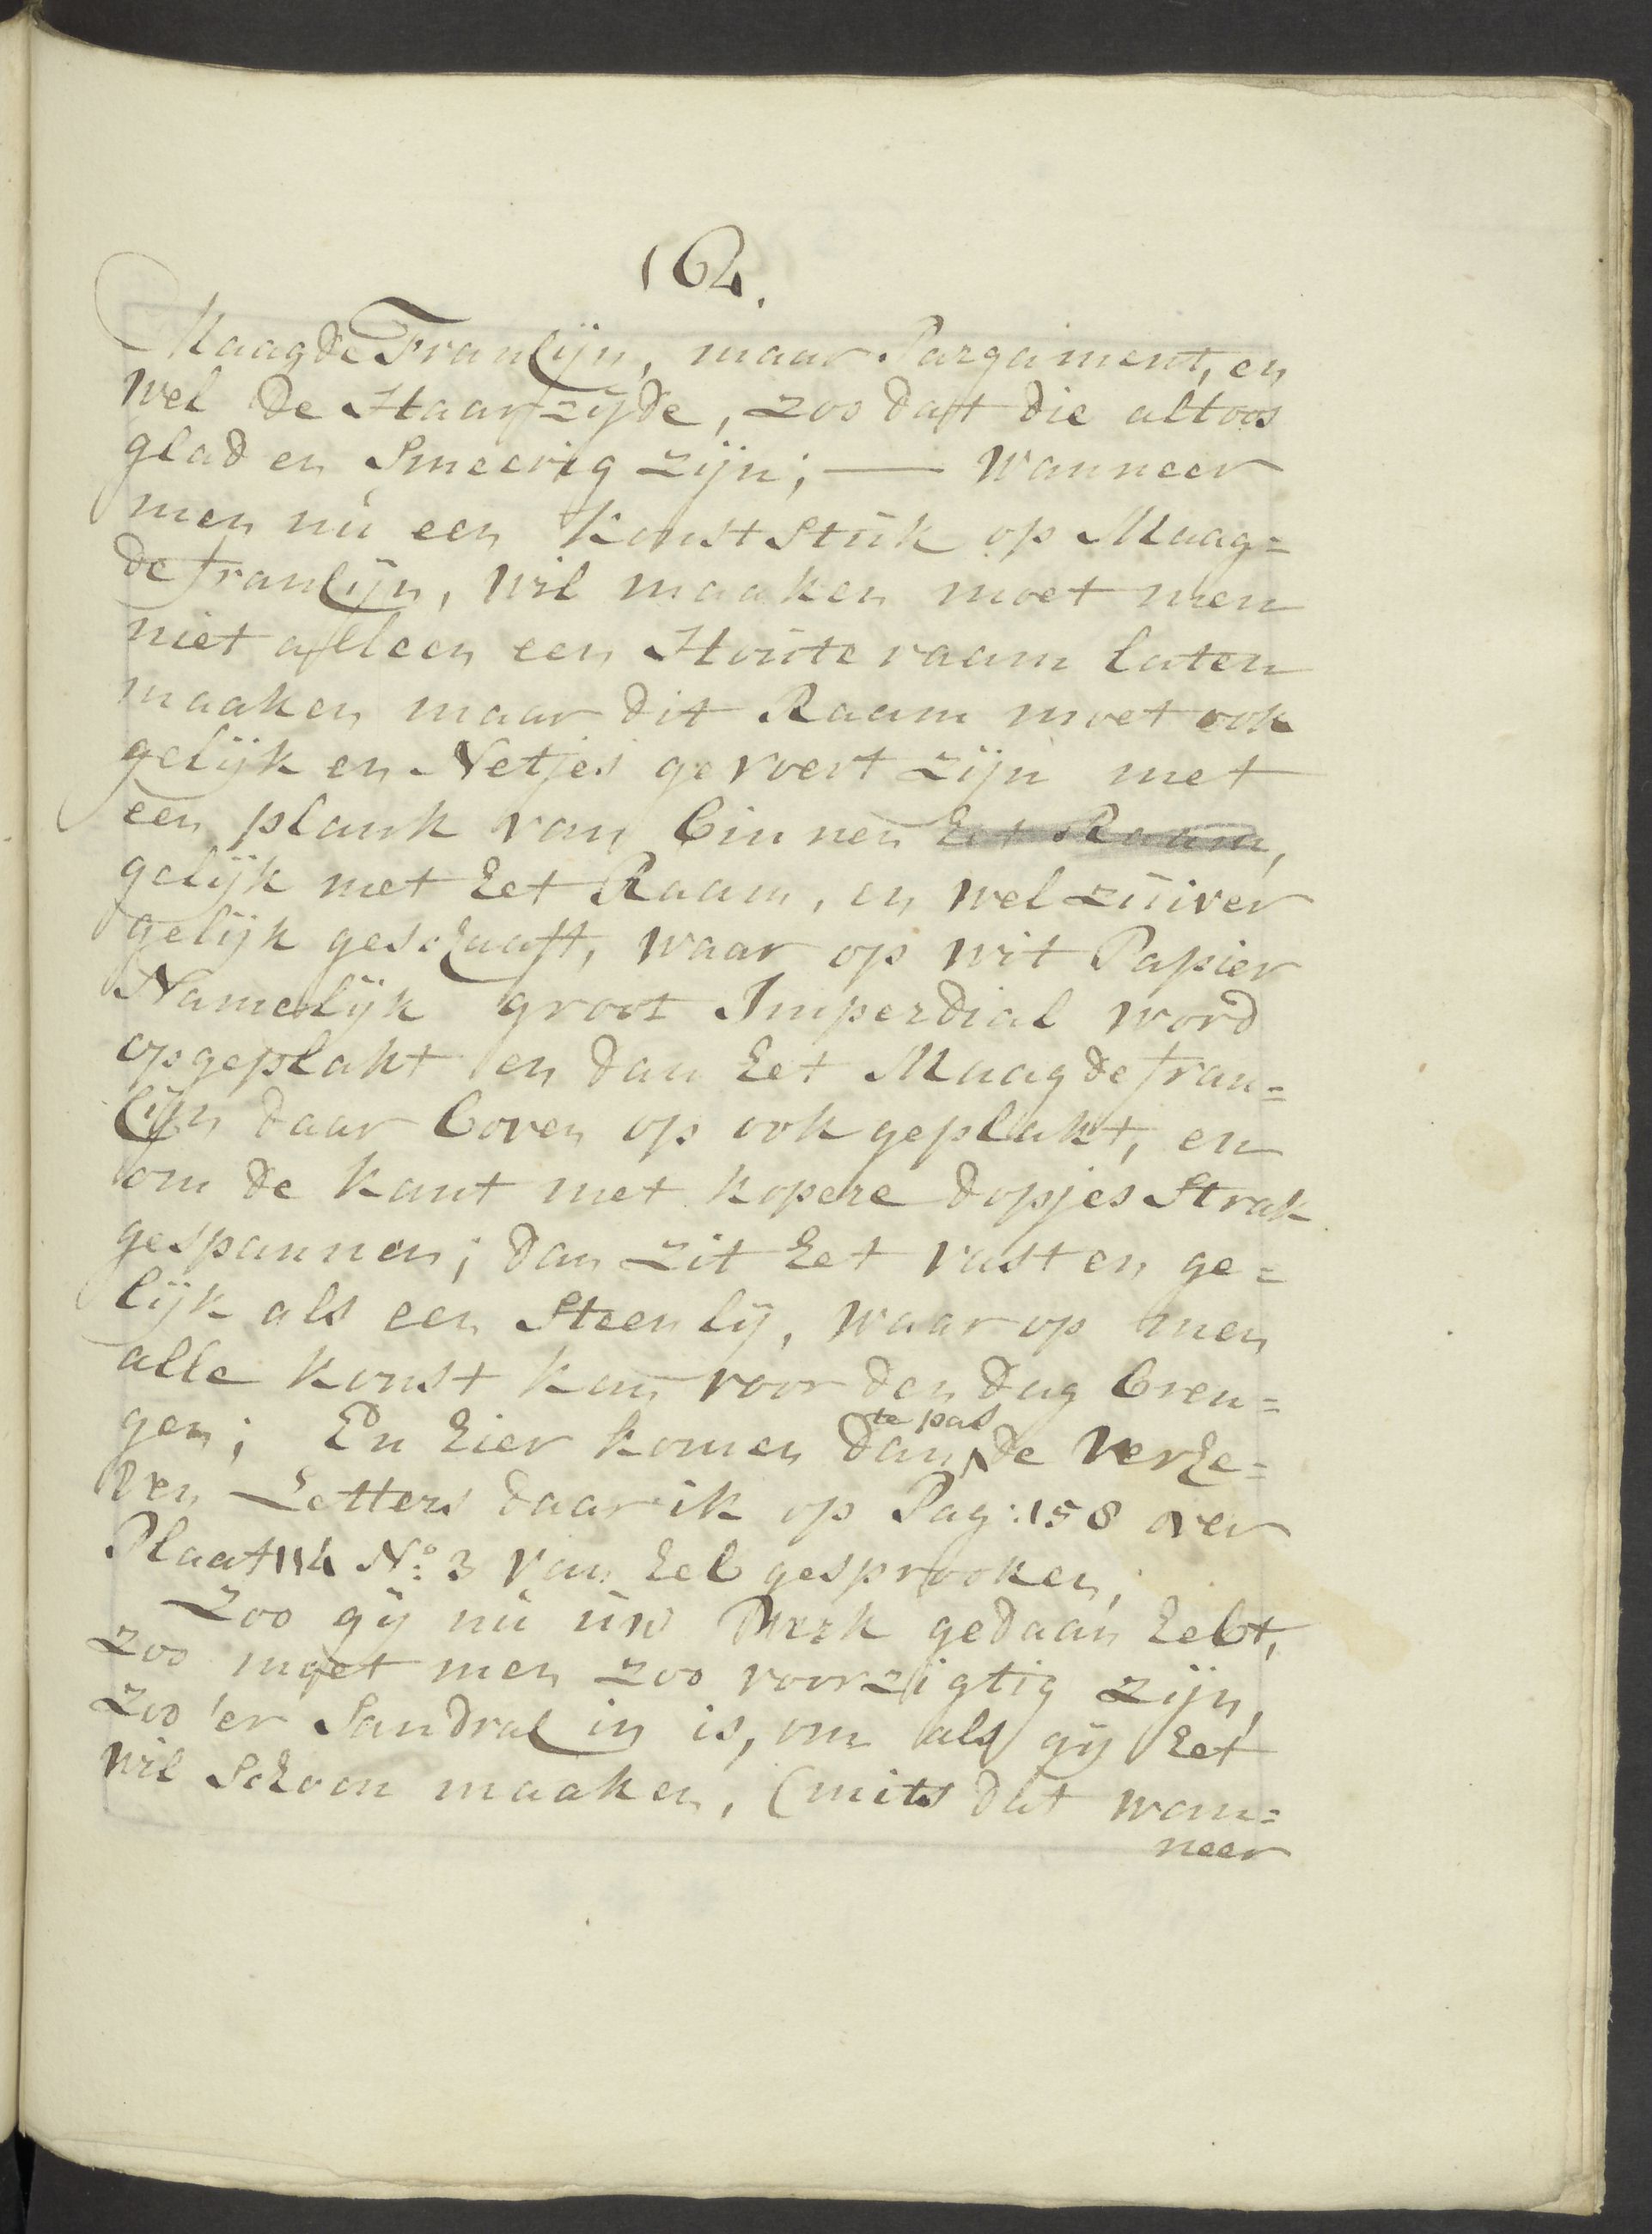 162.
Maagde Franlijn, maar Pargament, en
wel de Haarzijde, zoo dat die altoos
glad en Smeerig zijn; — wanneer
men nù een Konst Stùk op Maag=
de franlijn, wil maaken moet men
niet alleen een Hoùte raam laten
maaken maar dit Raam moet ook
gelijk en Netjes gevoert zijn met
een plank van binnen het Raam,
gelijk met het Raam, en wel zùiver
gelijk geschaaft, waar op wit Papier
Namelijk groot Imperdial word
opgeplakt en dan het Maagde fran=
lijn daar boven op ook geplakt, en
om de kant met kopere dopjes Strak
gespannen; dan zit het vast en ge=
lijk als een Steen lij, waar op men
alle konst kan voor den dag bren=
gen; En hier komen dan te pas de verhe=
ven Letters daar ik op Pag: 158 over
Plaat 114 No: 3 van heb gesprooken;
Zoo gij nù ùw Werk gedaan hebt,
zoo moet men zoo voorzigtig zijn,
zoo 'er Sandrak in is, om als gij het
wil Schoon maaken, (mits dat wan=
neer